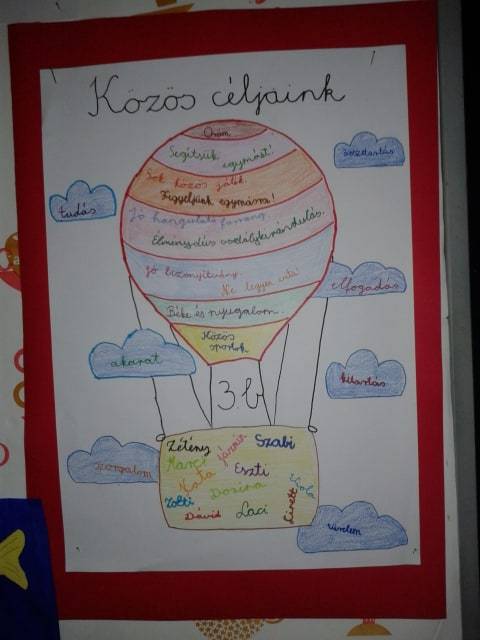 Közös céljaink
Öröm.
Segítsük egymást!
Sok közös játék.
Figyeljünk egymásra!
Jó hangulatú farsang.
Élménydús osztálykirándulás.
Jó bizonyítvány.
Ne legyen vita!
Béke és nyugalom.
Közös sportok
összetartás
tudás
elfogadás
akarat
kitartás
szorgalom
türelem
3.b
Zétény
Szabi
Marci
Jázmin
Kata
Eszti
Dorina
Zolti
Dávid
Laci